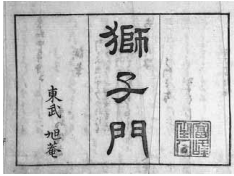 獅子門
東武 旭菴